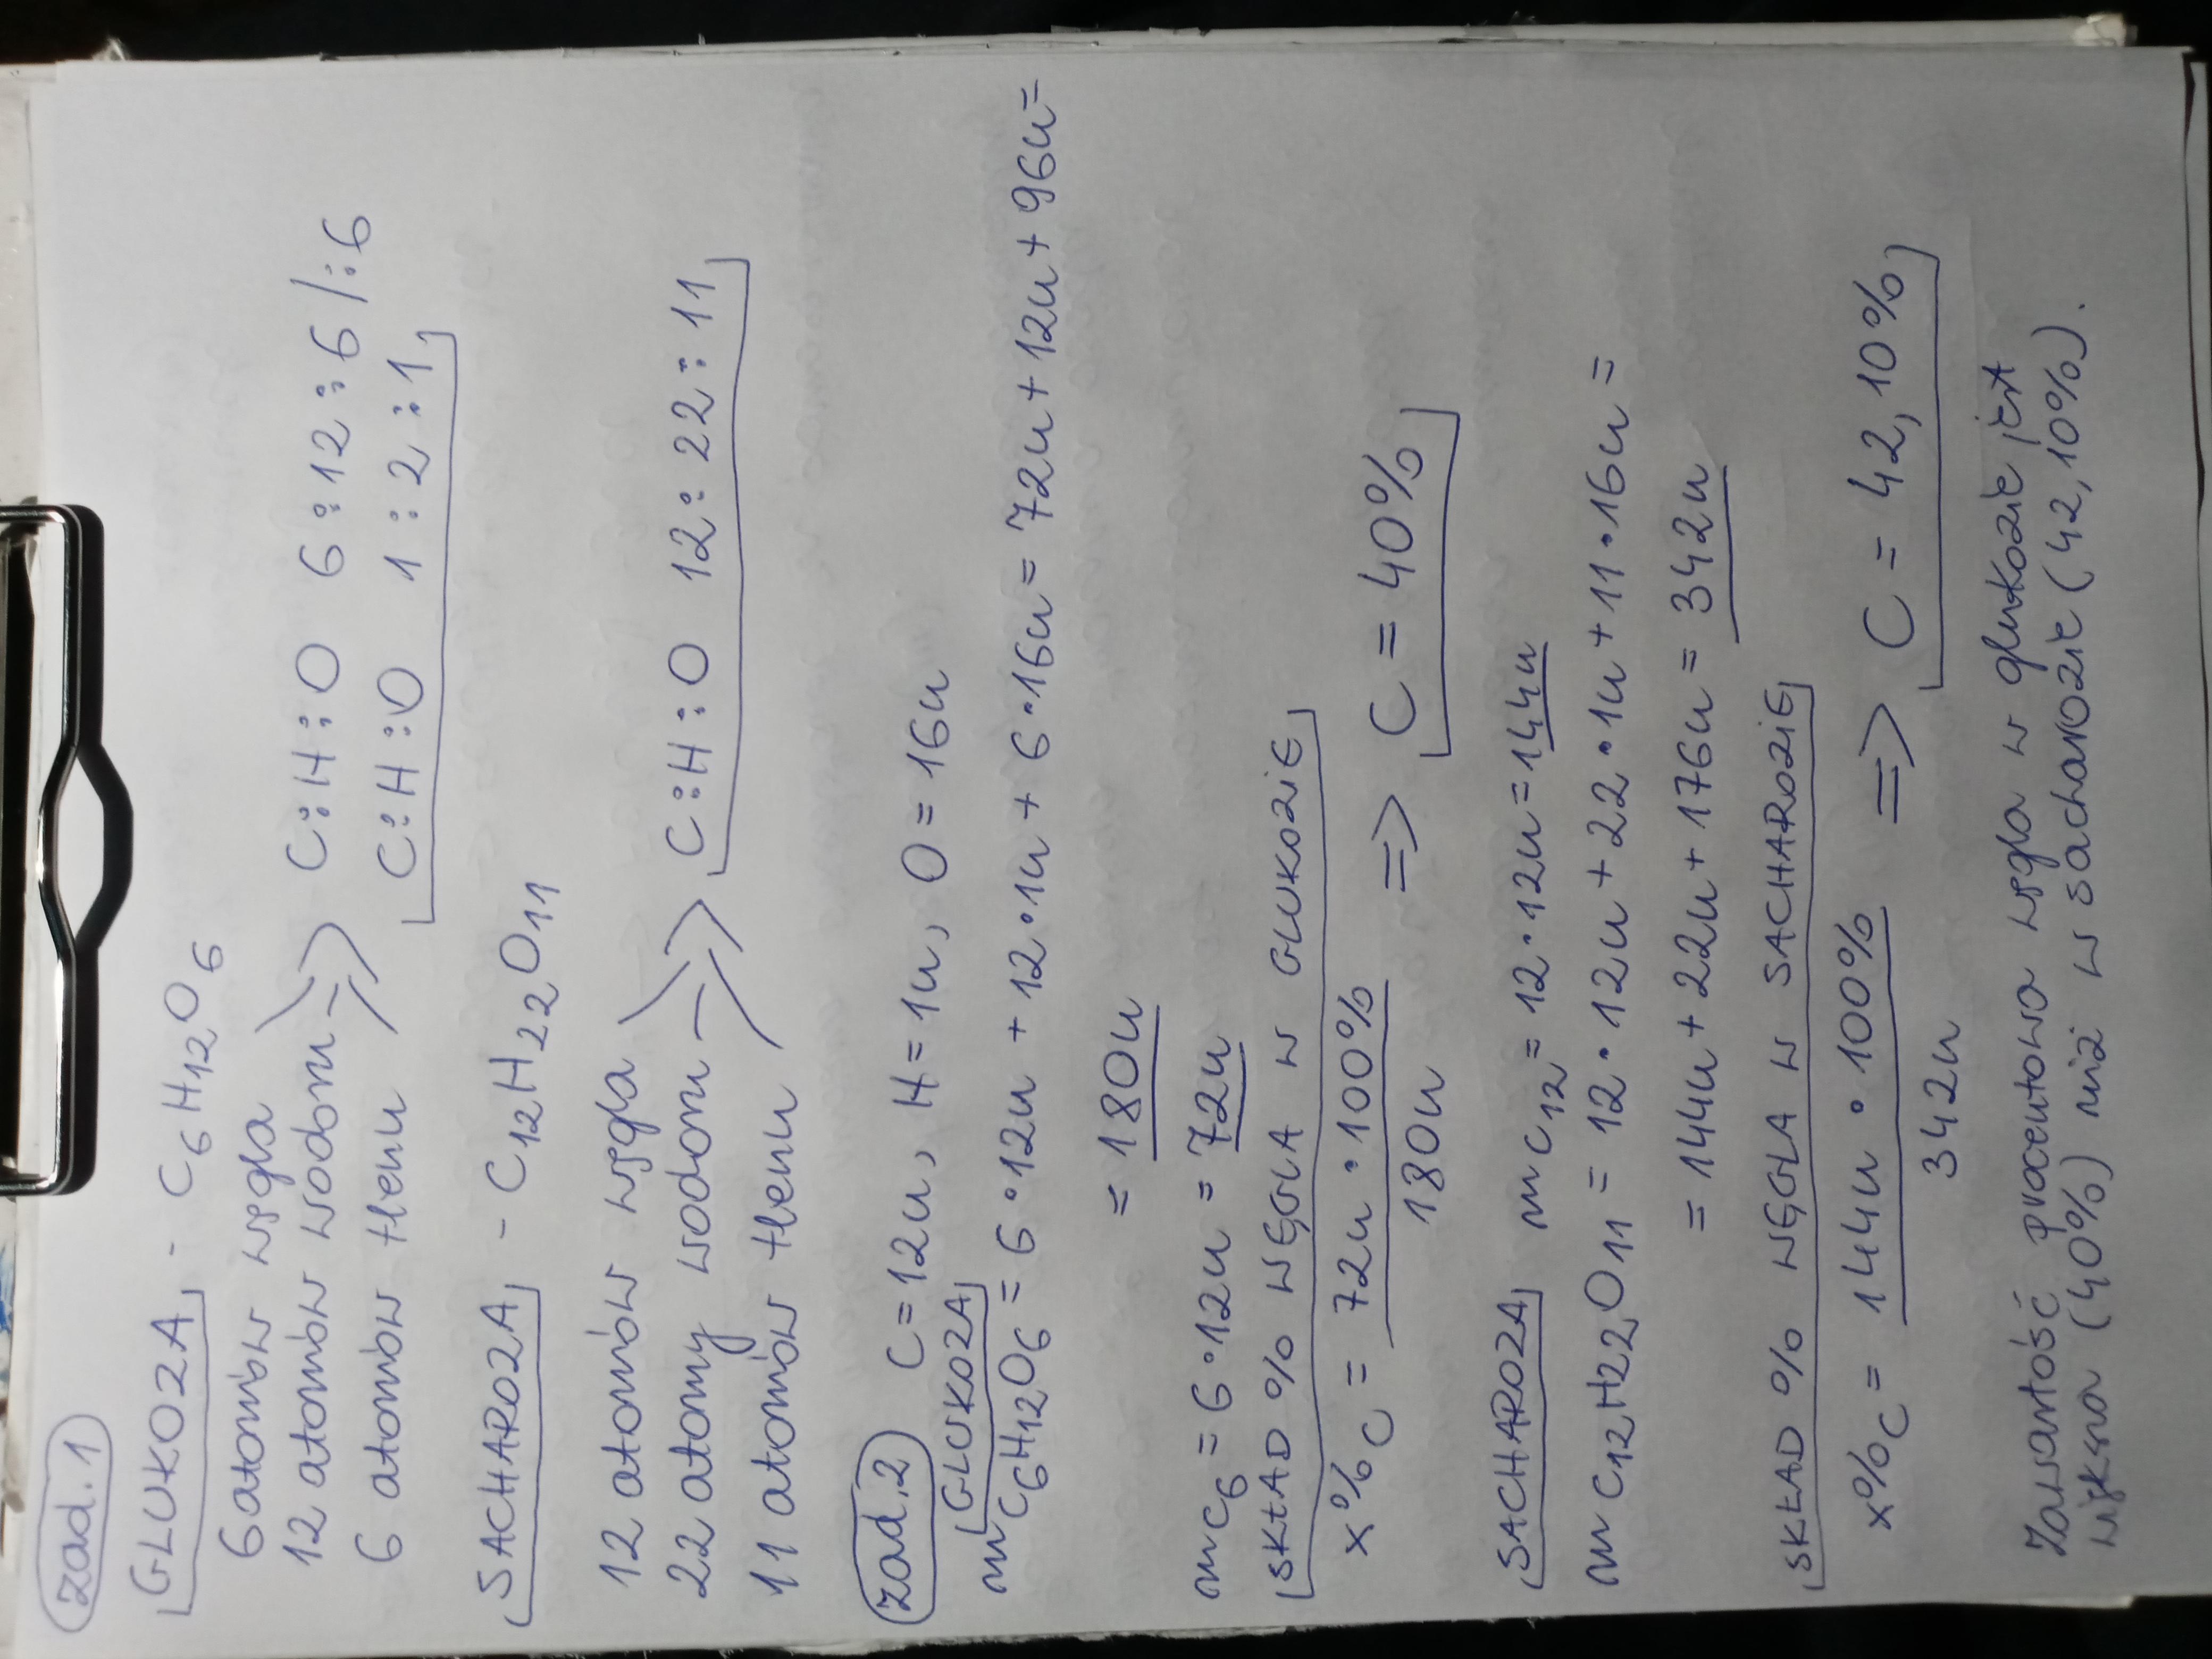 zad. 1
GLUKOZA - C6H12O6
6 atomów węgla
12 atomów wodoru
6 atomów tlenu
C:H:O 6:12:6 /:6
C:H:O 1:2:1
SACHAROZA - C12H22O11
12 atomów węgla
22 atomy wodoru
11 atomów tlenu
C:H:O 12:22:11
zad. 2 C=12u, H=1u, O=16u
GLUKOZA
mC6H12O6 = 6·12u + 12·1u + 6·16u = 72u + 12u + 96u =
= 180u
mC6 = 6·12u = 72u
SKŁAD % WĘGLA W GLUKOZIE
x%C = 72u·100% / 180u => C = 40%
SACHAROZA mC12 = 12·12u = 144u
mC12H22O11 = 12·12u + 22·1u + 11·16u =
= 144u + 22u + 176u = 342u
SKŁAD % WĘGLA W SACHAROZIE
x%C = 144u·100% / 342u => C = 42,10%
Zawartość procentowa węgla w glukozie jest
większa (40%) niż w sacharozie (42,10%).